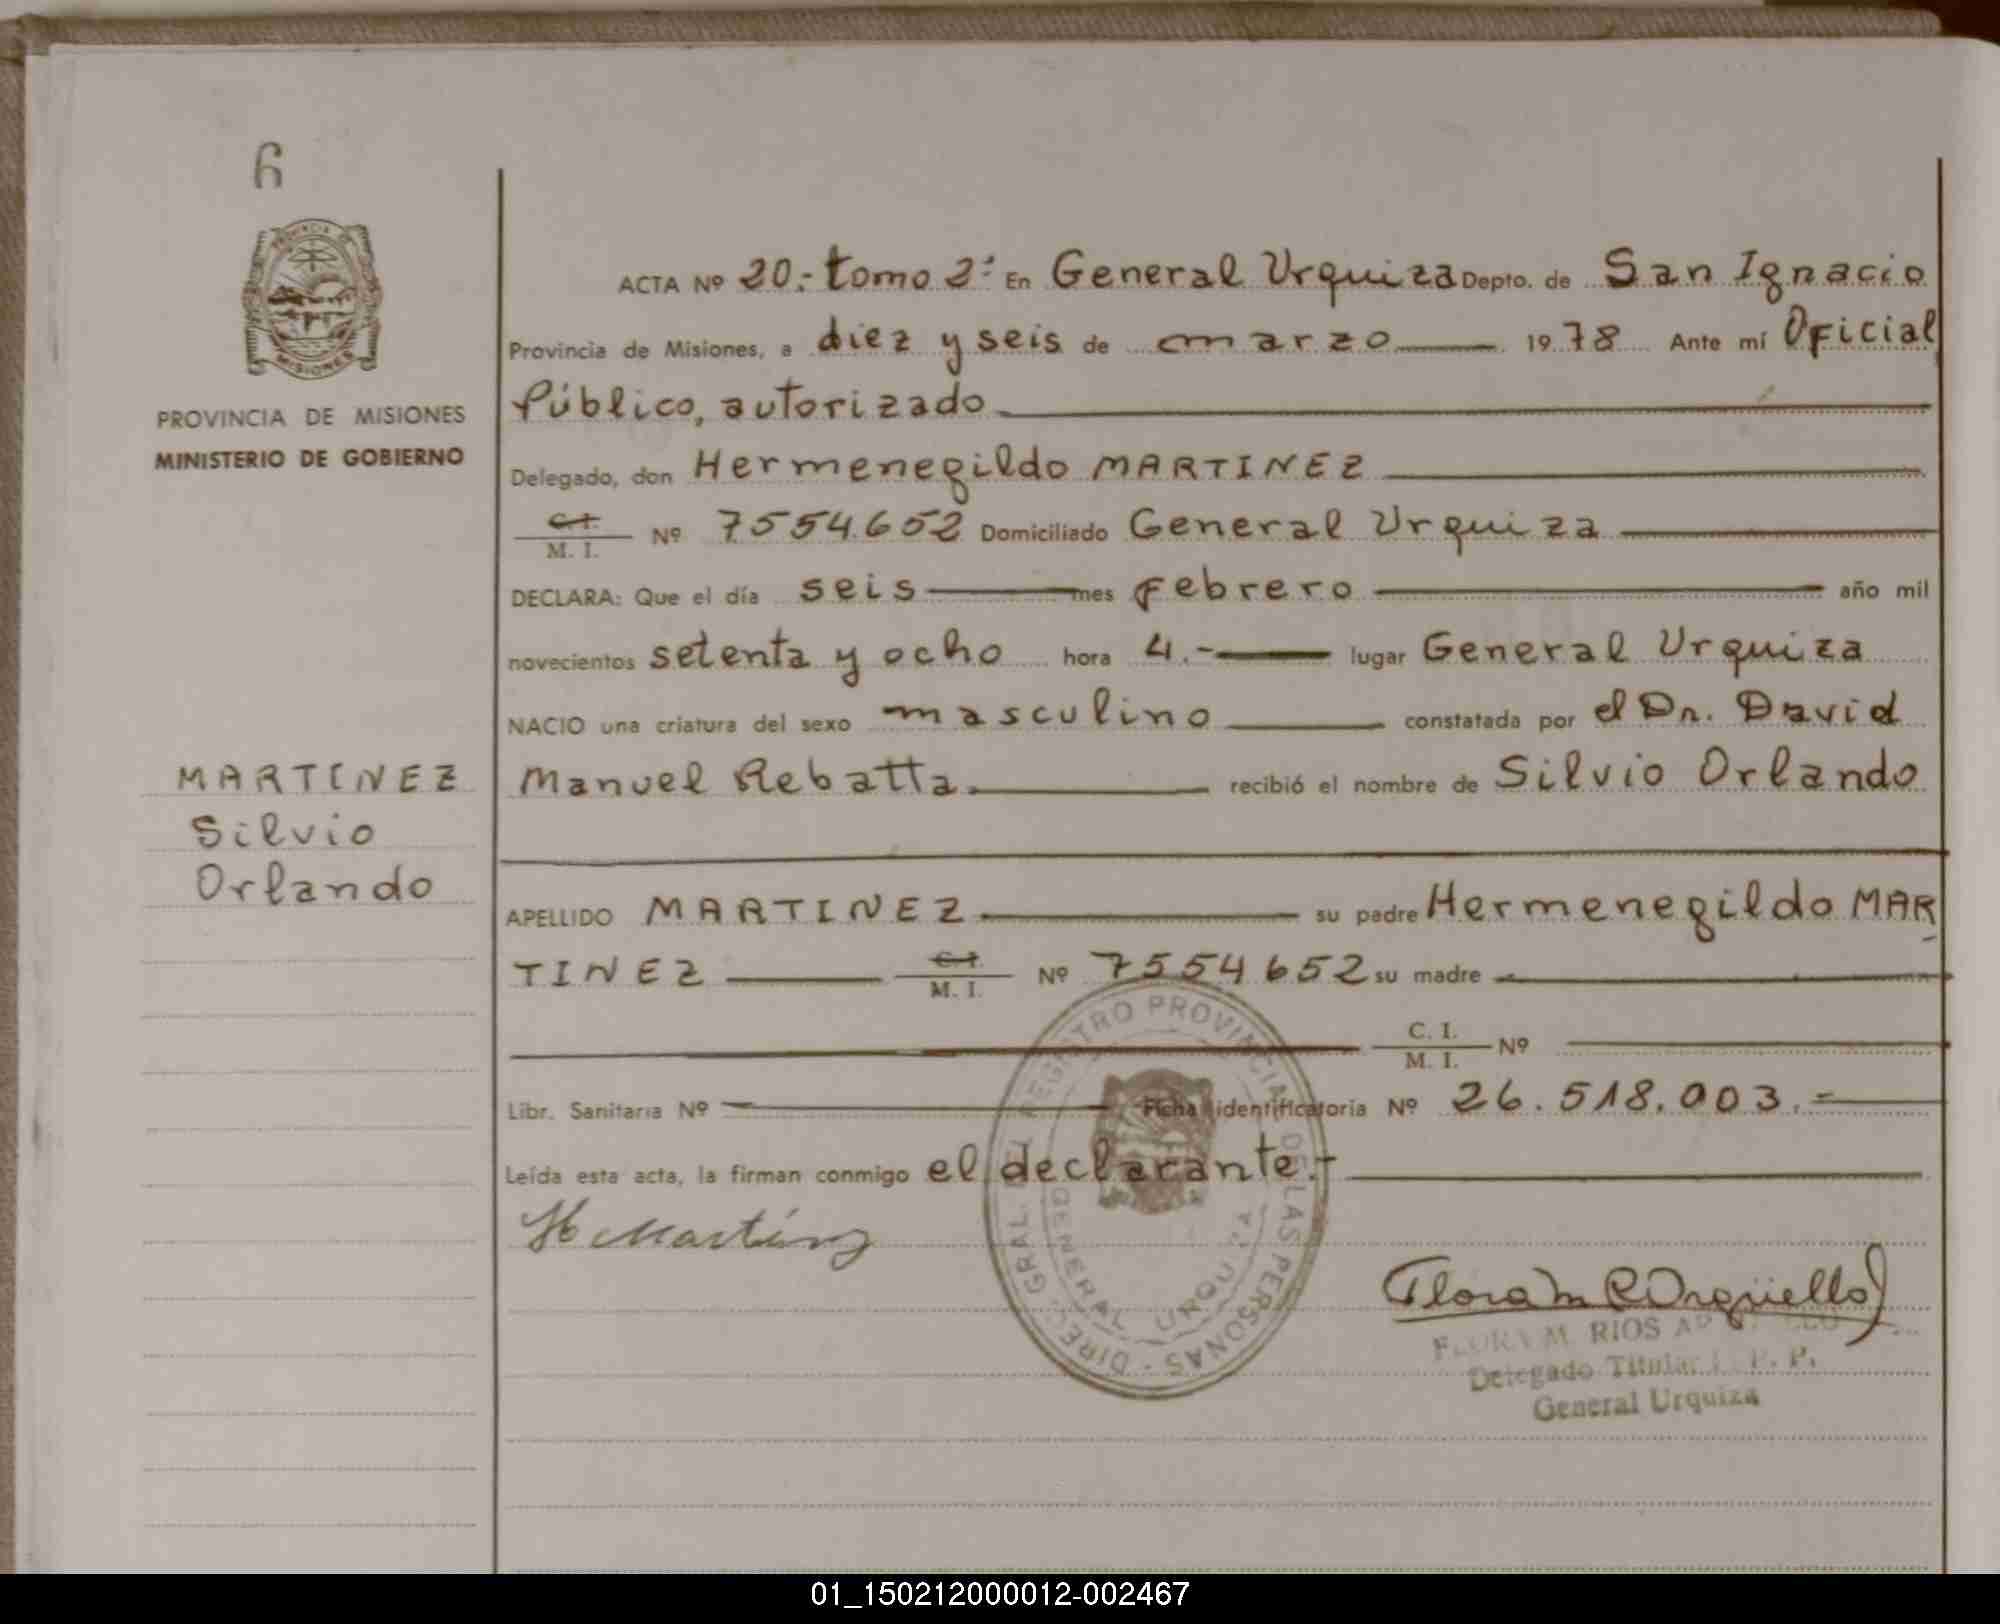 6
PROVINCIA DE MISIONES
PROVINCIA DE MISIONES
MINISTERIO DE GOBIERNO
MARTINEZ
Silvio
Orlando
ACTA Nº 20.- tomo 2º En General Urquiza Depto. de San Ignacio
Provincia de Misiones, a diez y seis de marzo 1978 Ante mí Oficial
Público, autorizado
Delegado, don Hermenegildo MARTINEZ
C. I. / M. I. Nº 7554.652 Domiciliado General Urquiza
DECLARA: Que el día seis mes febrero año mil
novecientos setenta y ocho hora 4.- lugar General Urquiza
NACIO una criatura del sexo masculino constatada por el Dr. David
Manuel Rebatta. recibió el nombre de Silvio Orlando
APELLIDO MARTINEZ su padre Hermenegildo MAR
TINEZ C. I. / M. I. Nº 7554652 su madre
C. I. / M. I. Nº
Libr. Sanitaria Nº Ficha identificatoria Nº 26.518.003.-
Leída esta acta, la firman conmigo el declarante.-
H Martinez
DIREC. GRAL. DEL REGISTRO PROVINCIAL DE LAS PERSONAS
GENERAL URQUIZA
Flora M R Argüello
FLORA M. RIOS
Delegado Titular P. P.
General Urquiza
01_150212000012-002467